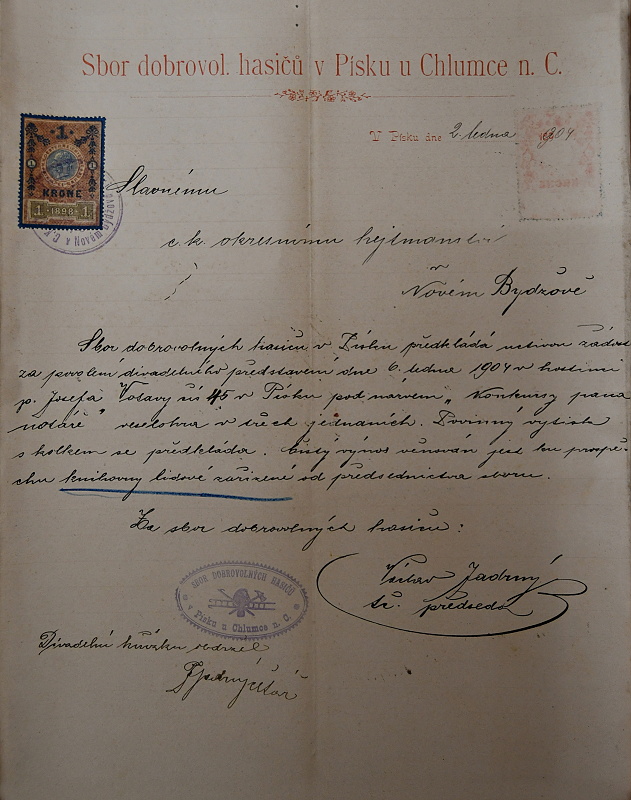 Sbor dobrovol. hasičů v Písku u Chlumce n. C.
V Písku dne 2. ledna 1904
1
1 1
KRONE
1 1898 1
Slavnému
c. k. okresnímu hejtmanství
v
Novém Bydžově
Sbor dobrovolných hasičů v Písku předkládá uctivou žádost
za povolení divadelního představení dne 6. ledna 1904 v hostinci
p. Josefa Votavy čís 45 v Písku pod názvem „Konkursy pana
notáře" veselohra v třech jednáních. Povinný výtisk
s kolkem se předkládá. Čistý výnos věnován jest ku prospě-
chu knihovny lidové zařízené od předsednictva sboru.
Za sbor dobrovolných hasičů:
Václav Jadrný
t. č. předseda
SBOR DOBROVOLNÝCH HASIČŮ
v Písku u Chlumce n. C.
Divadelní knížku obdržel